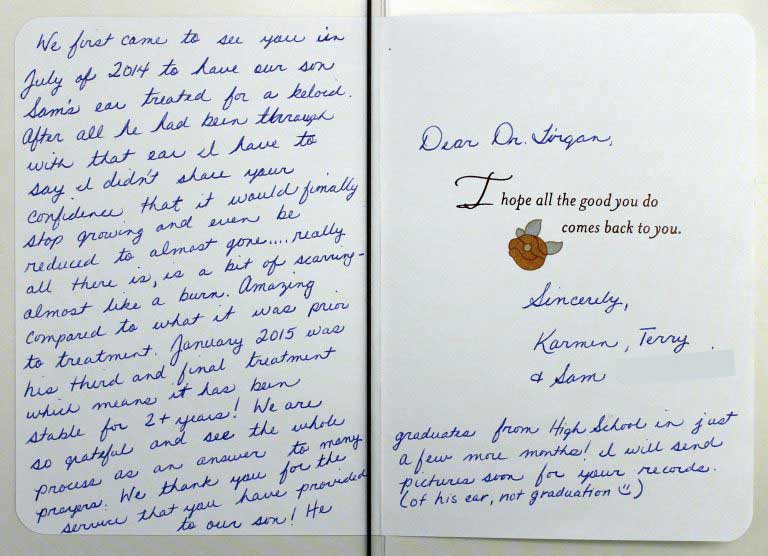 We first came to see you in
July of 2014 to have our son
Sam's ear treated for a keloid.
After all he had been through
with that ear I have to
say I didn't share your
confidence that it would finally
stop growing and even be
reduced to almost gone.... really
all there is, is a bit of scarring-
almost like a burn. Amazing
compared to what it was prior
to treatment. January 2015 was
his third and final treatment
which means it has been
stable for 2+ years! We are
so grateful and see the whole
process as an answer to many
prayers. We thank you for the
service that you have provided
to our son! He
Dear Dr. Tirgan,
I hope all the good you do
comes back to you.
Sincerely,
Karmen, Terry
& Sam
graduates from High School in just
a few more months! I will send
pictures soon for your records.
(of his ear, not graduation ☺)